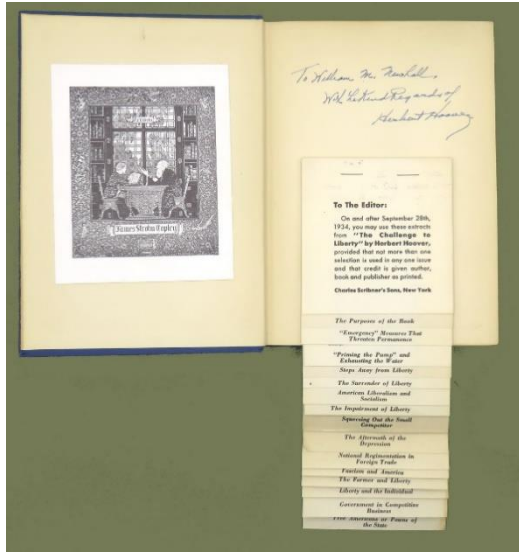 James Strohn Copley
To William M. Newhall
With the Kind Regards of
Herbert Hoover
To The Editor:
On and after September 28th,
1934, you may use these extracts
from "The Challenge to
Liberty" by Herbert Hoover,
provided that not more than one
selection is used in any one issue
and that credit is given author,
book and publisher as printed.
Charles Scribner's Sons, New York
The Purpose of the Book
"Emergency" Measures That
Threaten Permanence
"Priming the Pump" and
Exhausting the Water
Steps Away from Liberty
The Surrender of Liberty
American Liberalism and
Socialism
The Impairment of Liberty
Squeezing Out the Small
Competitor
The Aftermath of the
Depression
National Regimentation in
Foreign Trade
Fascism and America
The Farmer and Liberty
Liberty and the Individual
Government in Competitive
Business
Free Americans or Pawns of
the State